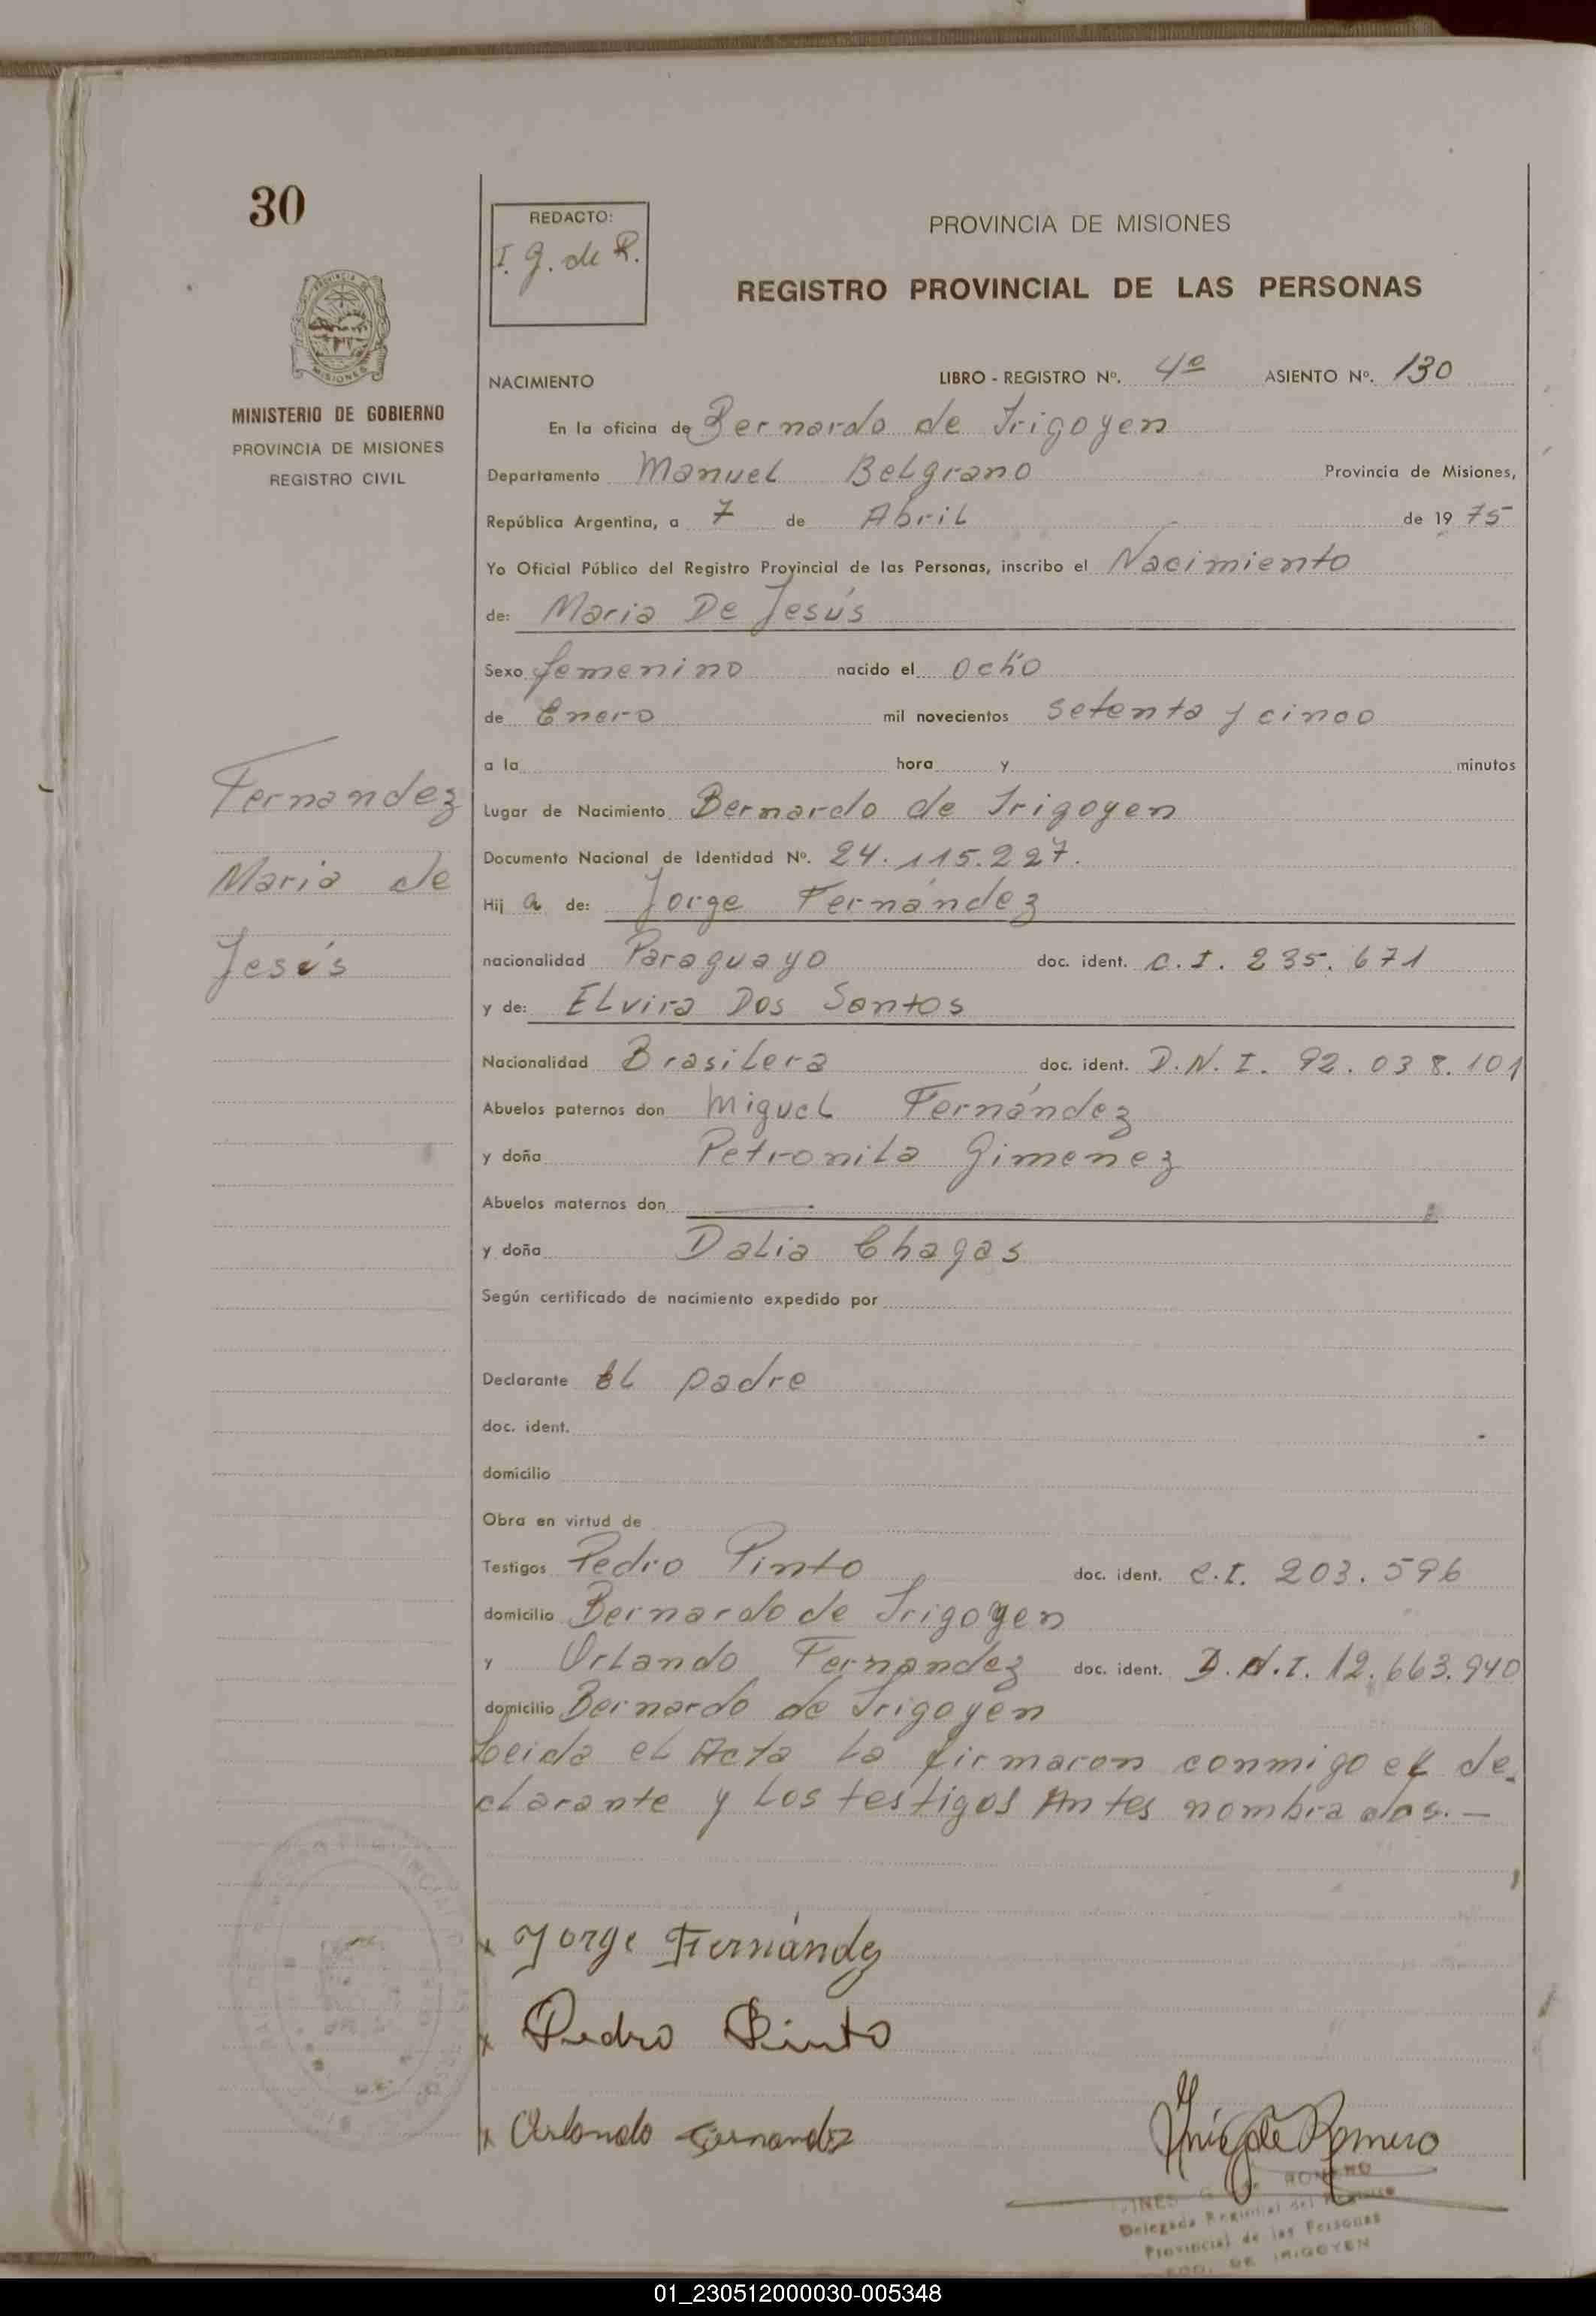 30
REDACTO:
I. G. de R.
PROVINCIA DE MISIONES
REGISTRO PROVINCIAL DE LAS PERSONAS
MISIONES
MINISTERIO DE GOBIERNO
PROVINCIA DE MISIONES
REGISTRO CIVIL
NACIMIENTO LIBRO - REGISTRO Nº. 4º ASIENTO Nº. 130
En la oficina de Bernardo de Irigoyen
Departamento Manuel Belgrano Provincia de Misiones,
República Argentina, a 7 de Abril de 19 75
Yo Oficial Público del Registro Provincial de las Personas, inscribo el Nacimiento
de: Maria De Jesús
Sexo femenino nacido el ocho
de Enero mil novecientos setenta y cinco
a la hora y minutos
Fernandez
Maria de
Jesús
Lugar de Nacimiento Bernardo de Irigoyen
Documento Nacional de Identidad Nº. 24.115.227.
Hij a de: Jorge Fernández
nacionalidad Paraguayo doc. ident. C.I. 235.671
y de: Elvira Dos Santos
Nacionalidad Brasilera doc. ident. D.N.I. 92.038.101
Abuelos paternos don Miguel Fernández
y doña Petronila Gimenez
Abuelos maternos don
y doña Dalia Chagas
Según certificado de nacimiento expedido por
Declarante El padre
doc. ident.
domicilio
Obra en virtud de
Testigos Pedro Pinto doc. ident. C.I. 203.596
domicilio Bernardo de Irigoyen
y Orlando Fernandez doc. ident. D.N.I. 12.663.940
domicilio Bernardo de Irigoyen
Leida el Acta la firmaron conmigo el de-
clarante y los testigos Antes nombrados.—
x Jorge Fernández
x Pedro Pinto
x Orlando Fernandez
Inés G de Romero
INES G. DE ROMERO
Delegada Regional del Registro
Provincial de las Personas
BDO. DE IRIGOYEN
01_230512000030-005348